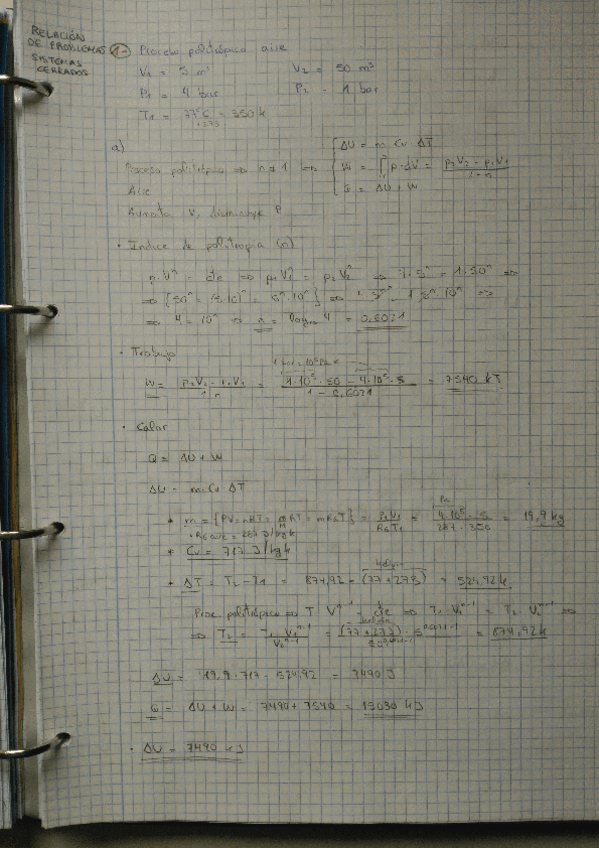 RELACIÓN
DE PROBLEMAS
SISTEMAS
CERRADOS
1- Proceso politrópico aire
V1 = 5 m³ V2 = 50 m³
P1 = 4 bar P2 = 1 bar
T1 = 77°C = 350 k
+273
a)
ΔU = m · Cv · ΔT
Proceso politrópico ⇒ n ≠ 1 W = ∫ p · dV = p2V2 - p1V1 / 1-n
Aire Q = ΔU + W
Aumenta V, disminuye P
· Indice de politropia (n)
p · Vⁿ = cte ⇒ p1V1ⁿ = p2V2ⁿ ⇒ 4 · 5ⁿ = 1 · 50ⁿ ⇒
⇒ {50ⁿ = (5·10)ⁿ = 5ⁿ·10ⁿ} ⇒ 4·5ⁿ = 1·5ⁿ·10ⁿ ⇒
⇒ 4 = 10ⁿ ⇒ n = log10 4 = 0,6021
· Trabajo
1 bar = 10⁵ Pa
W = p2V2 - p1V1 / 1-n = 1·10⁵ · 50 - 4·10⁵ · 5 / 1 - 0,6021 = 7540 kJ
· Calor
Q = ΔU + W
ΔU = m · Cv · ΔT
* m = {PV = nRT = m/M RT = mRGT} = P1V1 / RGT1 = 4·10⁵ · 5 / 287 · 350 = 19,9 kg
* Cv = 717 J/kg k
* ΔT = T2 - T1 = 874,92 - (77 + 273) = 524,92 k
Proc politrópico ⇒ T · Vⁿ⁻¹ = cte ⇒ T1 · V1ⁿ⁻¹ = T2 · V2ⁿ⁻¹ ⇒
⇒ T2 = T1 · V1ⁿ⁻¹ / V2ⁿ⁻¹ = (77 + 273) · 5 = 874,92 k
ΔU = 19,9 · 717 · 524,92 = 7490 J
Q = ΔU + W = 7490 + 7540 = 15030 kJ
· ΔU = 7490 kJ